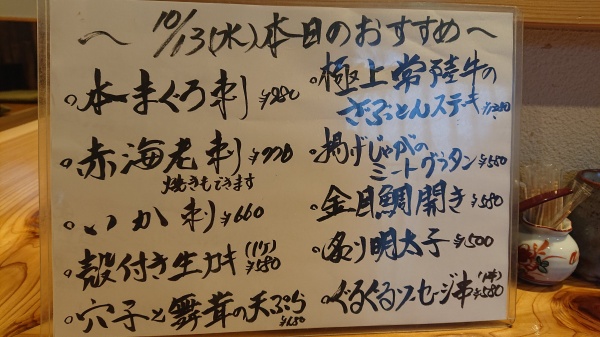 〜10/13(水)本日のおすすめ〜
。本まぐろ刺 ¥980
。赤海老刺 ¥770
焼きもできます
。いか刺 ¥660
。殻付き生カキ(1ケ) ¥580
。穴子と舞茸の天ぷら ¥650
。極上常陸牛の
ざぶとんステーキ
。揚げじゃがの
ミートグラタン ¥550
。金目鯛開き ¥580
。炙り明太子 ¥500
。ぐるぐるソーセージ串(1本) ¥580